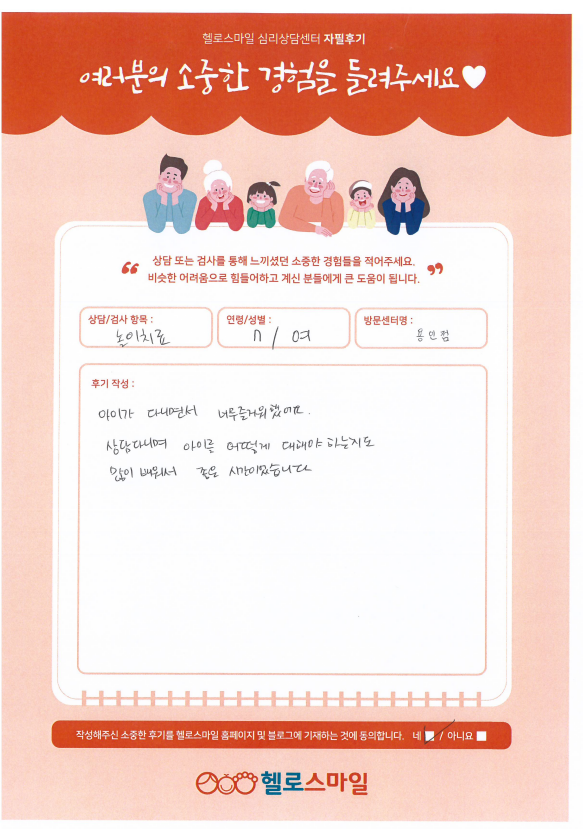 헬로스마일 심리상담센터 자필후기
여러분의 소중한 경험을 들려주세요♥
상담 또는 검사를 통해 느끼셨던 소중한 경험들을 적어주세요.
비슷한 어려움으로 힘들어하고 계신 분들에게 큰 도움이 됩니다.
상담/검사 항목 :
놀이치료
연령/성별 :
7 / 여
방문센터명 :
용인점
후기 작성 :
아이가 다니면서 너무즐거워했어요.
상담다니며 아이를 어떻게 대해야 하는지도
많이 배워서 좋은 시간이었습니다
작성해주신 소중한 후기를 헬로스마일 홈페이지 및 블로그에 기재하는 것에 동의합니다. 네 / 아니요
헬로스마일